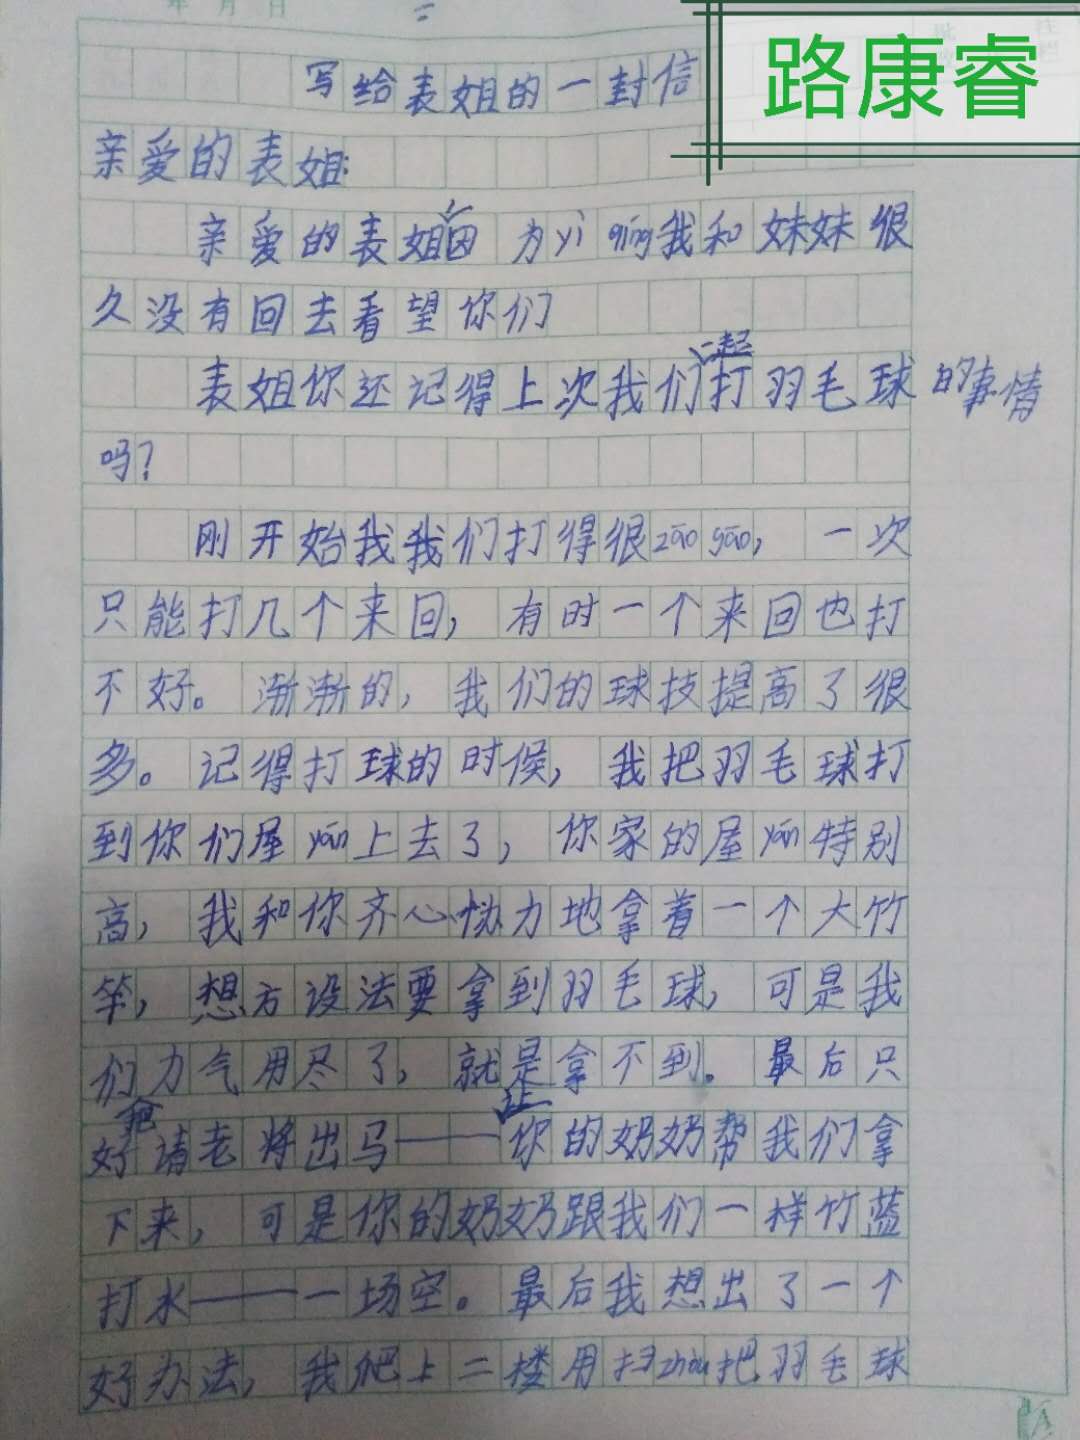 年 月 日
路康睿
写给表姐的一封信
亲爱的表姐:
亲爱的表姐因为yì qíng我和妹妹很
久没有回去看望你们
表姐你还记得上次我们一起打羽毛球的事情
吗?
刚开始我我们打得很zāo gāo,一次
只能打几个来回,有时一个来回也打
不好。渐渐的,我们的球技提高了很
多。记得打球的时候,我把羽毛球打
到你们屋yán上去了,你家的屋yán特别
高,我和你齐心协力地拿着一个大竹
竿,想方设法要拿到羽毛球,可是我
们力气用尽了,就是拿不到。最后只
好请老将出马——让你的奶奶帮我们拿
下来,可是你的奶奶跟我们一样竹蓝
打水——一场空。最后我想出了一个
好办法,我爬上二楼用扫zhou把羽毛球